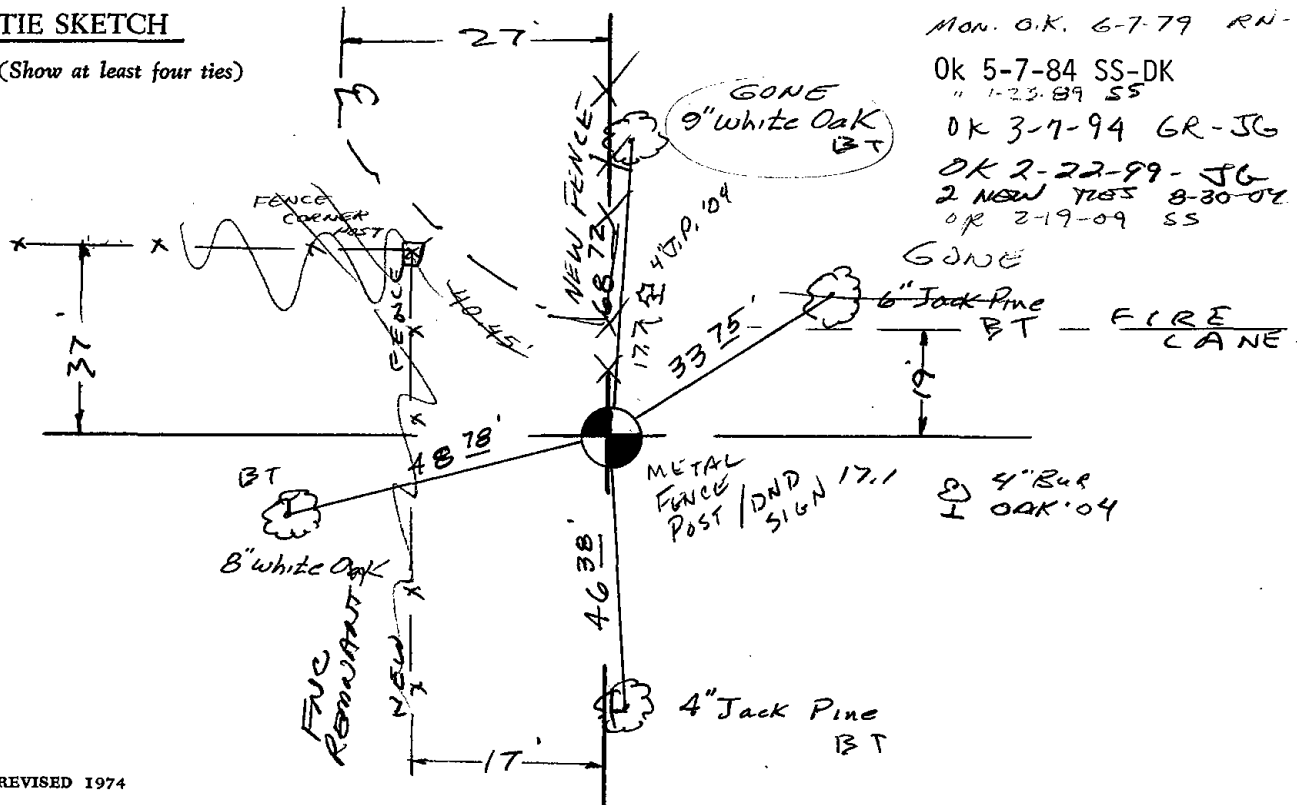 TIE SKETCH
(Show at least four ties)
27'
MON. O.K. 6-7-79 RN-
Ok 5-7-84 SS-DK
" 1-23-89 SS
OK 3-7-94 GR-JG
OK 2-22-99- JG
2 NEW TIES 8-30-04
OK 2-19-09 SS
GONE
9" White Oak
BT
NEW FENCE
FENCE
CORNER
POST
68 72'
4" J.P. '04
17.7
40.45'
FENCE
37'
GONE
6" Jack Pine
BT
FIRE
LANE
33 75'
19'
48 78'
BT
8" white Oak
METAL
FENCE
POST / DND
SIGN 17.1
4" BUR
OAK '04
46 38'
FNC
REMNANT
NEW
4" Jack Pine
BT
17'
REVISED 1974